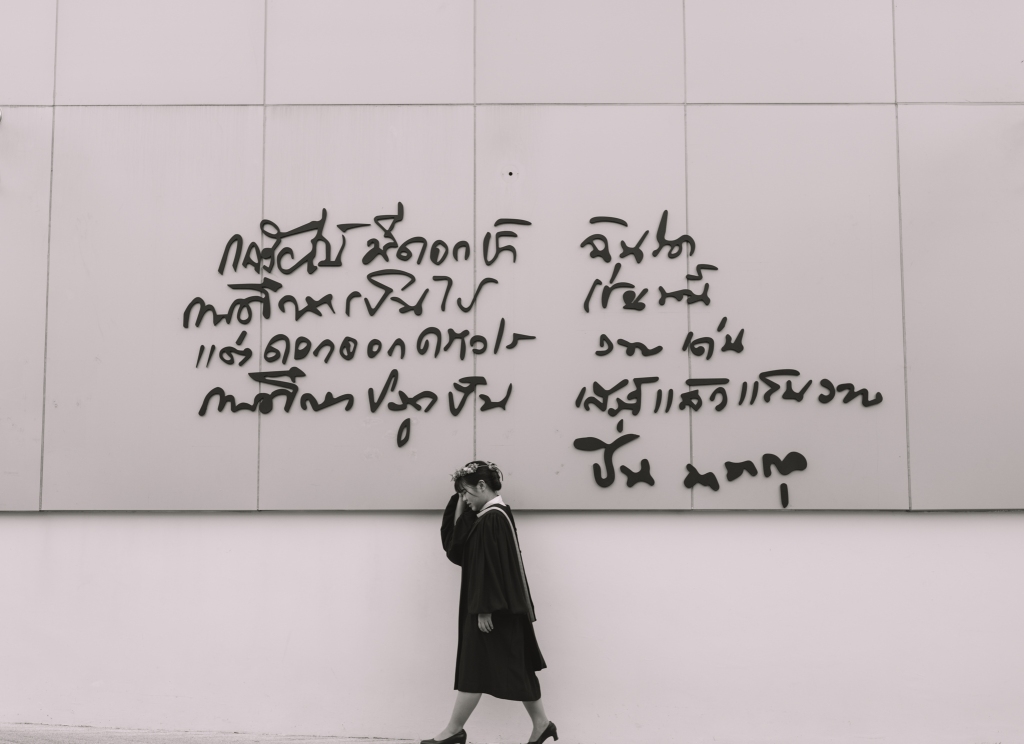 กล้วยไม้ มีดอกช้า ฉันใด
การศึกษา เป็นไป เช่นนั้น
แต่ ดอกออก คราวไร งาม เด่น
การศึกษา ปลูก ปั้น เสร็จ แล้ว แสน งาม
ปิ่น มาลากุล